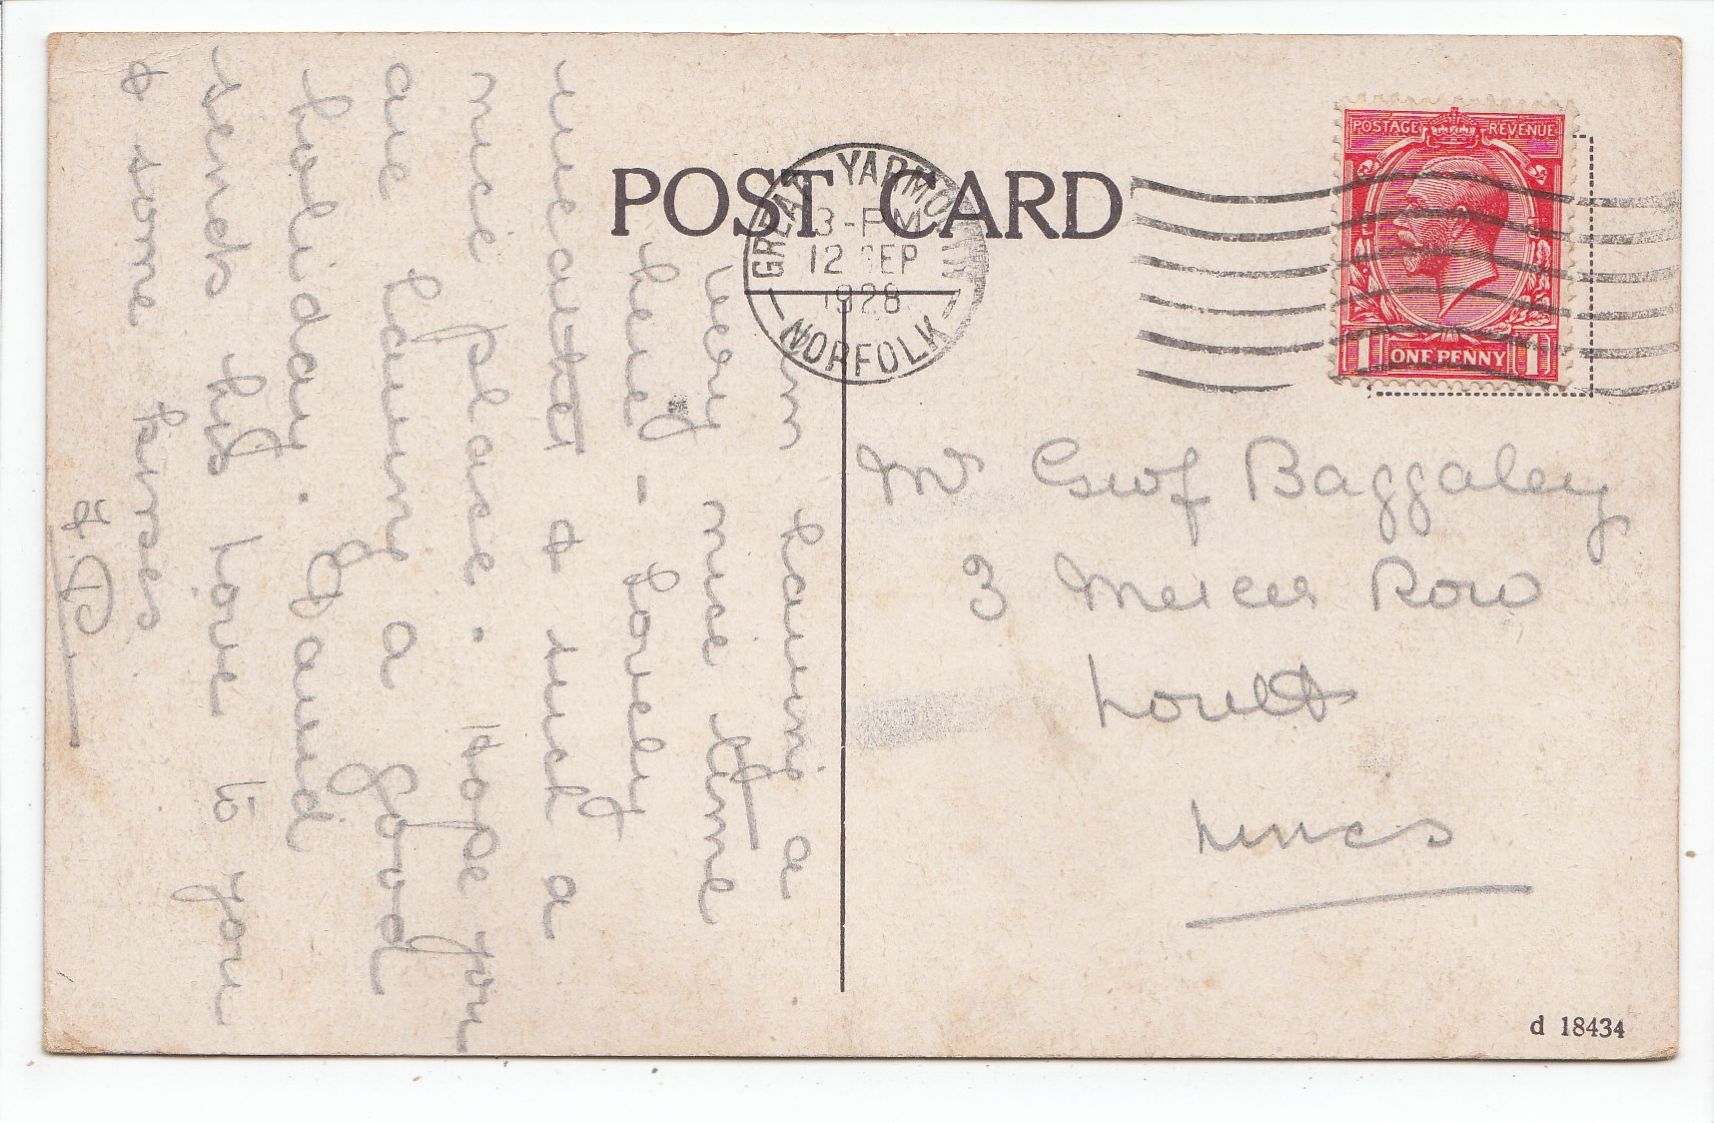 POST CARD
GREAT YARMOUTH
3-PM
12 SEP
1928
NORFOLK
POSTAGE REVENUE
1 ONE PENNY 1
am having a
very nice time
here - lovely
weather & such a
nice place. Hope you
are having a good
holiday. David
sends his love to you
& some kisses
Mr Geof Baggaley
3 Mercer Row
Louth
Lincs
d 18434